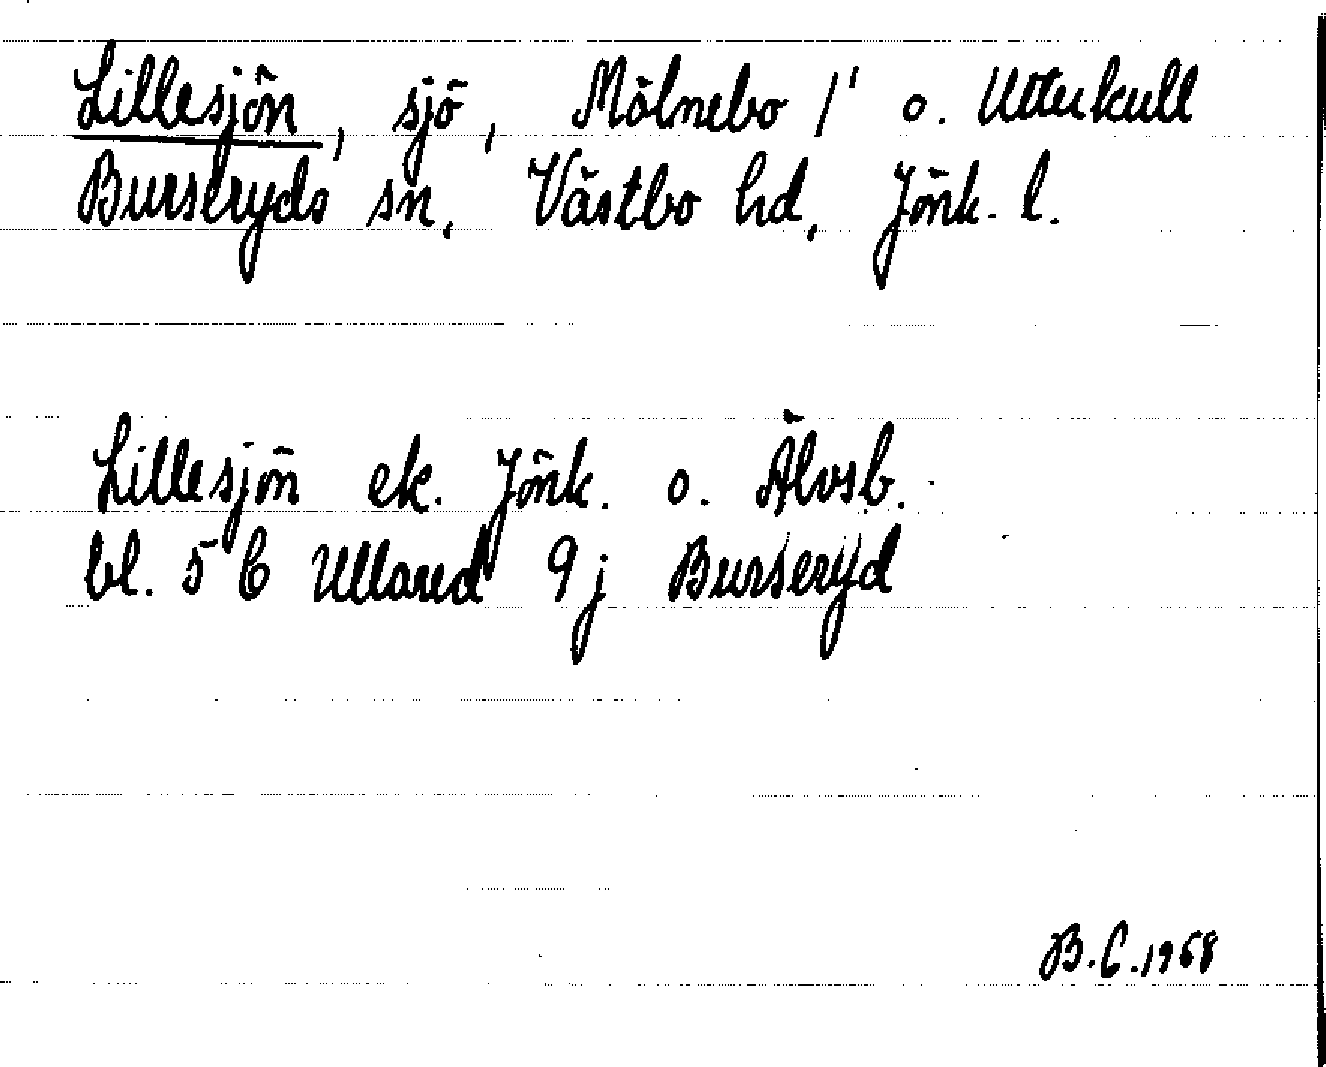 Lillesjön, sjö, Mölnebo 1¹ o. Utterkull
Burseryds sn, Västbo hd, Jönk. l.
Lillesjön ek. Jönk. o. Älvsb.
bl. 5 C Ullared 9 j Burseryd
B.C.1968